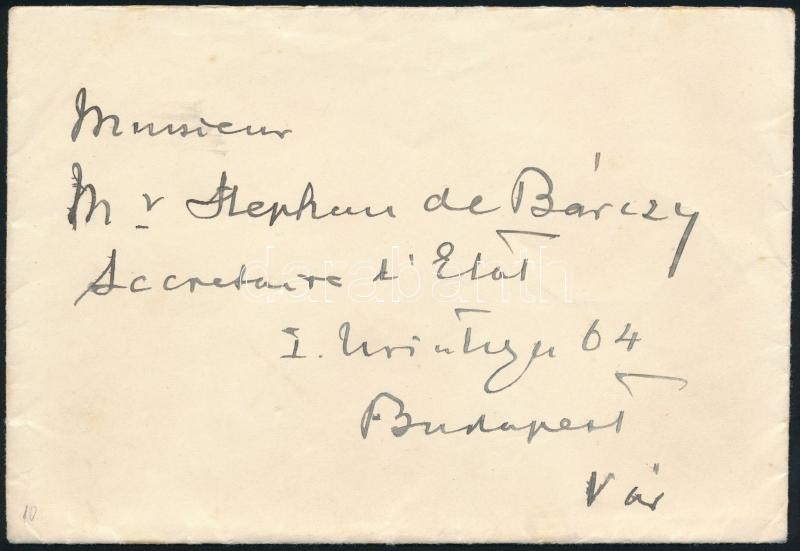 Monsieur
Mr Stephan de Bárczy
Secretaire d'Etat
darabanth
I. 64
Budapest
Vár
10